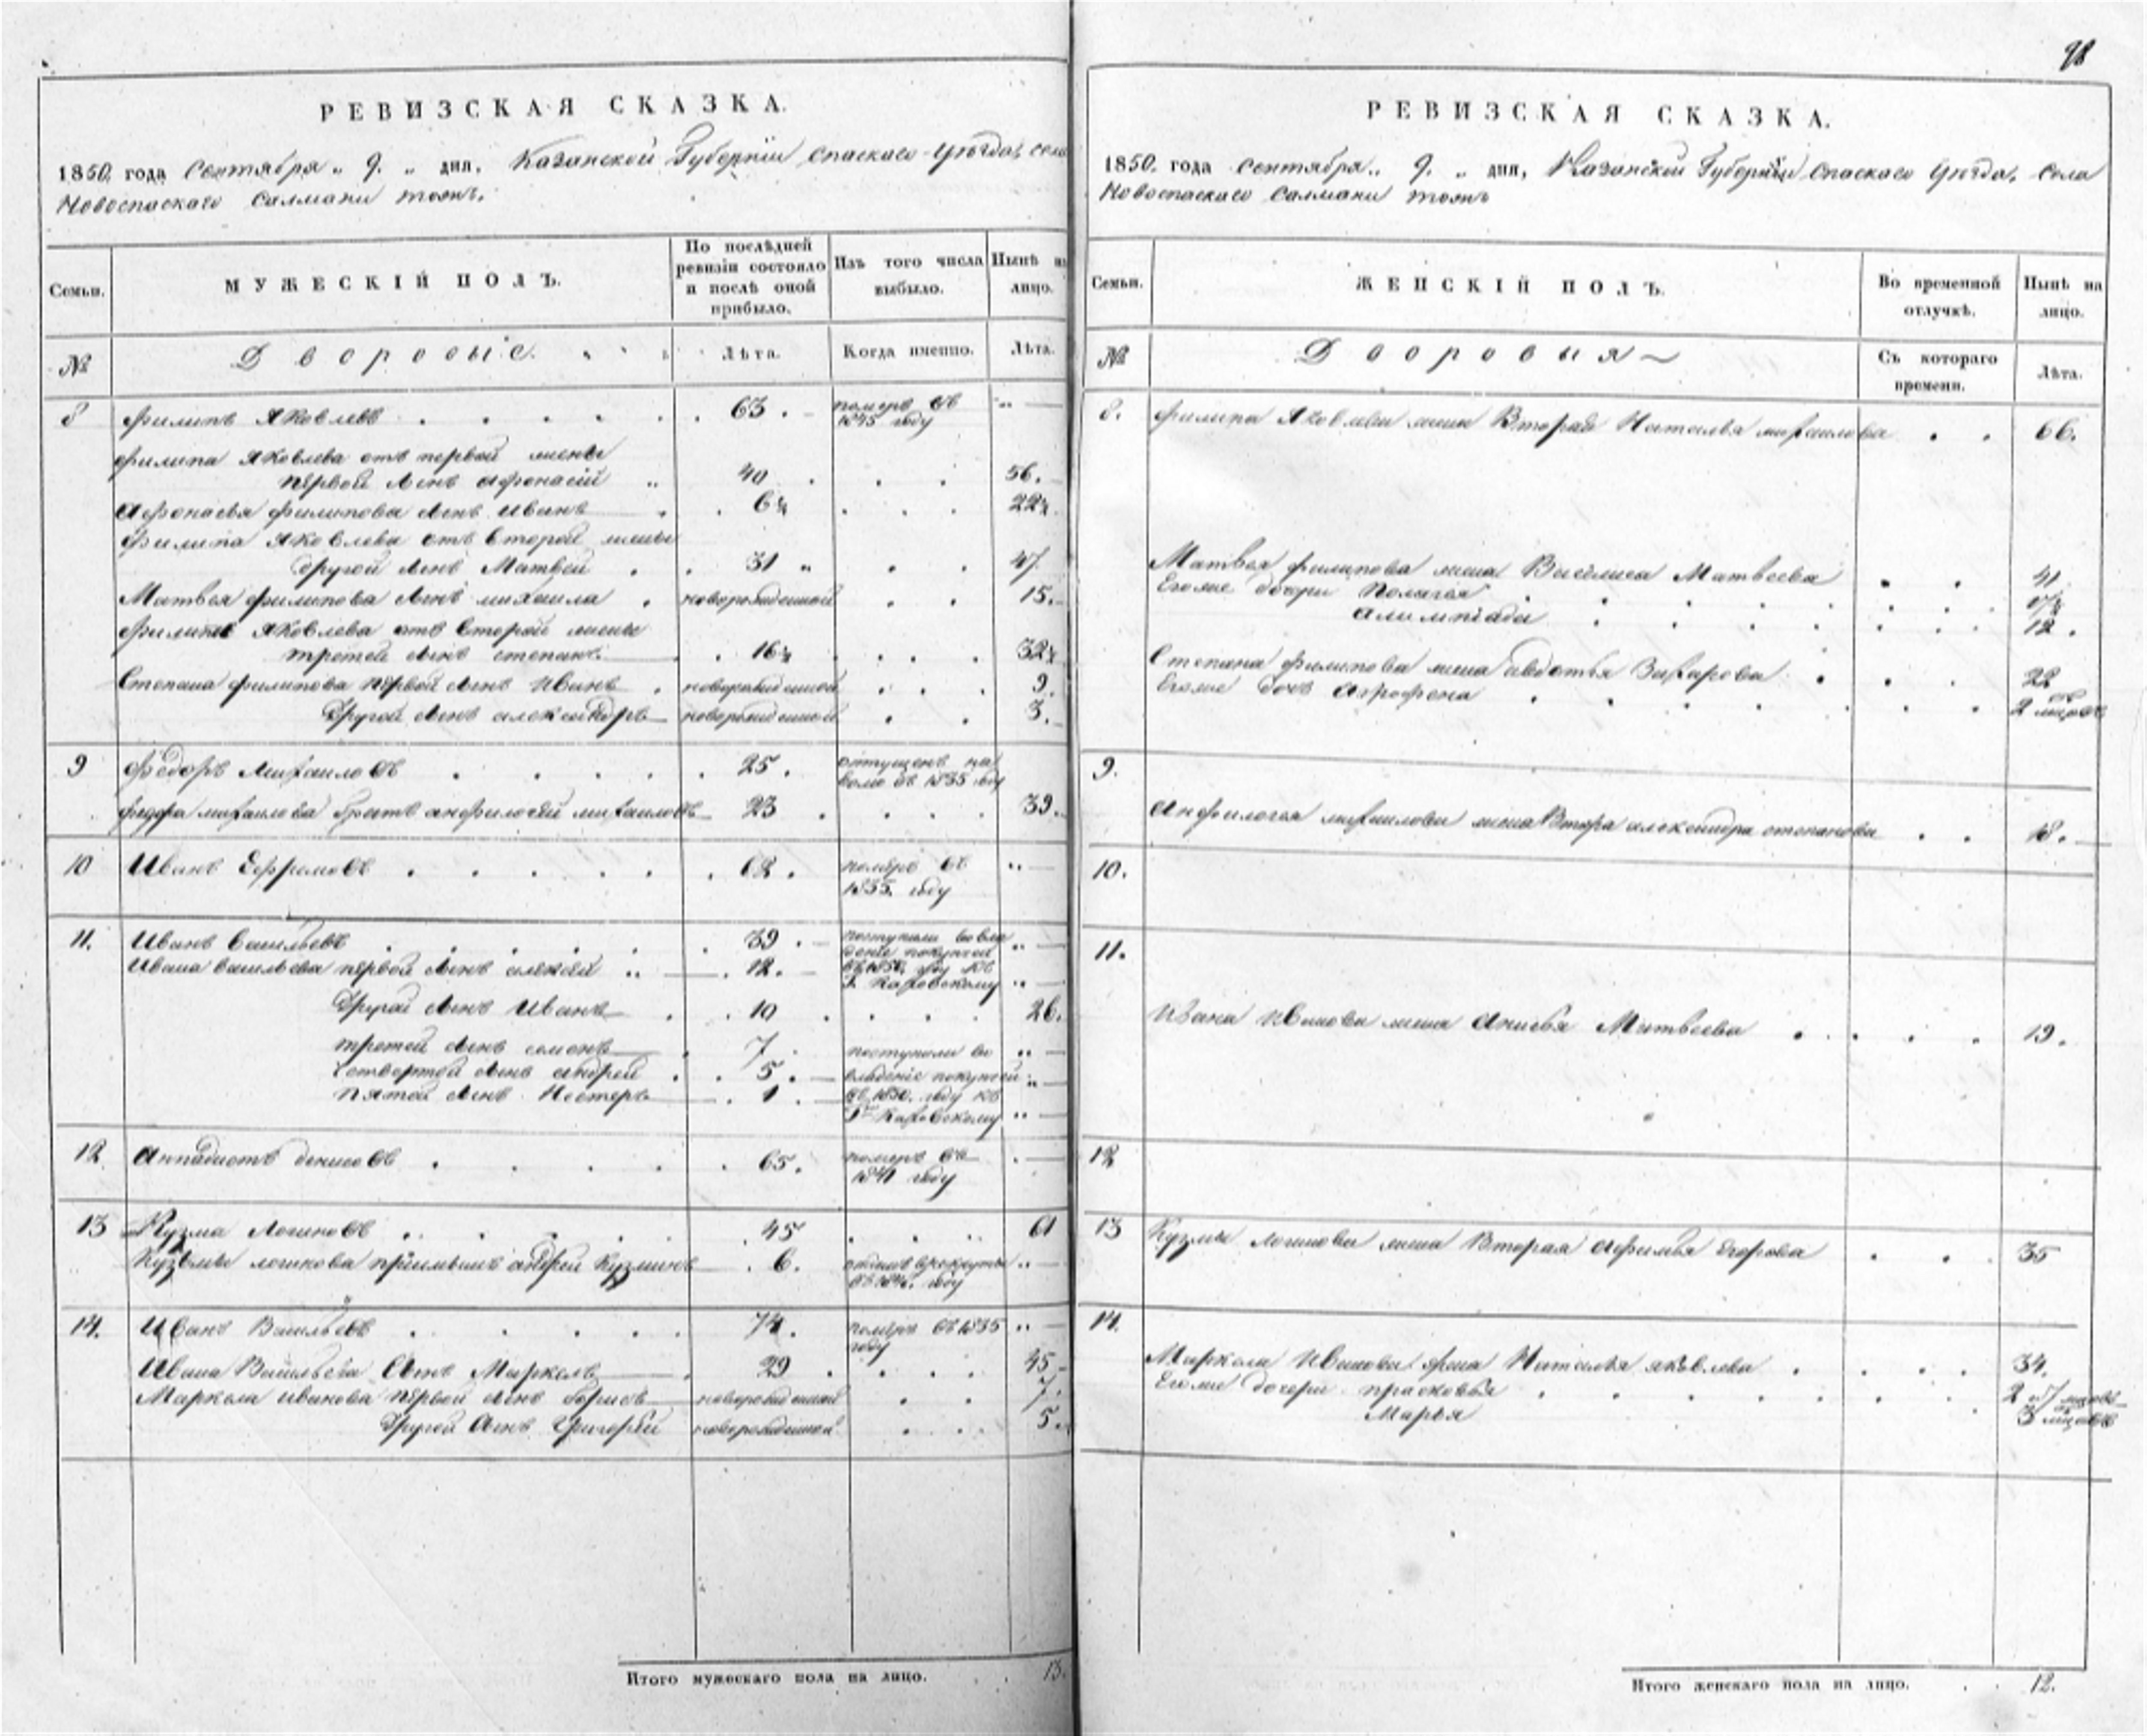 98
РЕВИЗСКАЯ СКАЗКА.
1850. года Сентября „ 9. „ дня, Казанской Губерніи Спаскаго Уѣзда, села
Новоспаскаго Салмани тожъ.
Семьи.
МУЖЕСКІЙ ПОЛЪ.
По послѣдней ревизіи состояло и послѣ оной прибыло.
Изъ того числа выбыло.
Нынѣ на лицо.
№
Дворовые
Лѣта.
Когда именно.
Лѣта.
8 Филипъ Яковлевъ 63. померъ въ 1845 году „
Филипа Яковлева отъ первой жены
первой сынъ Афонасій „ 40 56.
Афонасья Филипова сынъ Иванъ 6½ 22½
Филипа Яковлева отъ второй жены
другой сынъ Матвей 31 „ 47
Матвея Филипова сынъ Михаила новорожденной 15.
Филипа Яковлева отъ второй жены
третей сынъ Степанъ 16½ 32½
Степана Филипова первой сынъ Иванъ новорожденной 9.
Другой сынъ Александръ новорожденной 3.
9 Федоръ Михаиловъ 25. отпущенъ на волю въ 1835 году
Федора Михаилова братъ Анфилогей Михаиловъ 23 39.
10 Иванъ Ефремовъ 62. померъ въ 1835. году „
11. Иванъ Васильевъ 39. поступили во вла „
Ивана Васильева первой сынъ Алексей „ 12. дѣніе покупкой въ 1850. году къ Г. „
Другой сынъ Иванъ 10 26.
третей сынъ Семенъ 7 поступили во „
Четвертой сынъ Андрей 5. владѣніе покупкой „
Пятой сынъ Нестеръ 1. въ 1850. году къ Гну „
12 Денисовъ 65. померъ въ 1841 году
13 Кузма Логиновъ 45 61
Кузьмы Логинова пріимышъ Андрей Кузминъ 6. отданъ в рекруты „
14. Иванъ Васильевъ 74. померъ въ 1835 году „
Ивана Васильева Сынъ Маркелъ 29 45
Маркела Иванова первой сынъ Борисъ новорожденной 7.
Другой Сынъ Григорей новорожденной 5.
Итого мужескаго пола на лицо. 13.
РЕВИЗСКАЯ СКАЗКА.
1850. года Сентября „ 9. „ дня, Казанской Губерніи Спаскаго Уѣзда, Села
Новоспаскаго Салмани тожъ
Семьи.
ЖЕНСКІЙ ПОЛЪ.
Во временной отлучкѣ.
Нынѣ на лицо.
№
Дворовыя
Съ котораго времени.
Лѣта.
8. Филипа Яковлева жена Вторая Наталья Михаилова 66.
Матвея Филипова жена Василиса Матвеева 41
Егоже дочери Пелагея
Алимпіада 12.
Степана Филипова жена Авдотья Захарова 22
Егоже дочь Аграфена
9.
Анфилогея Михаилова жена Втора Александра Степанова 18.
10.
11.
Ивана Иванова жена Анисья Матвеева 19.
12
13 Кузмы Логинова жена Вторая Афимья Егорова 35
14.
Маркела Иванова жена Наталья Яковлева 34.
Егоже дочери Прасковья
Марья
Итого женскаго пола на лицо. 12.